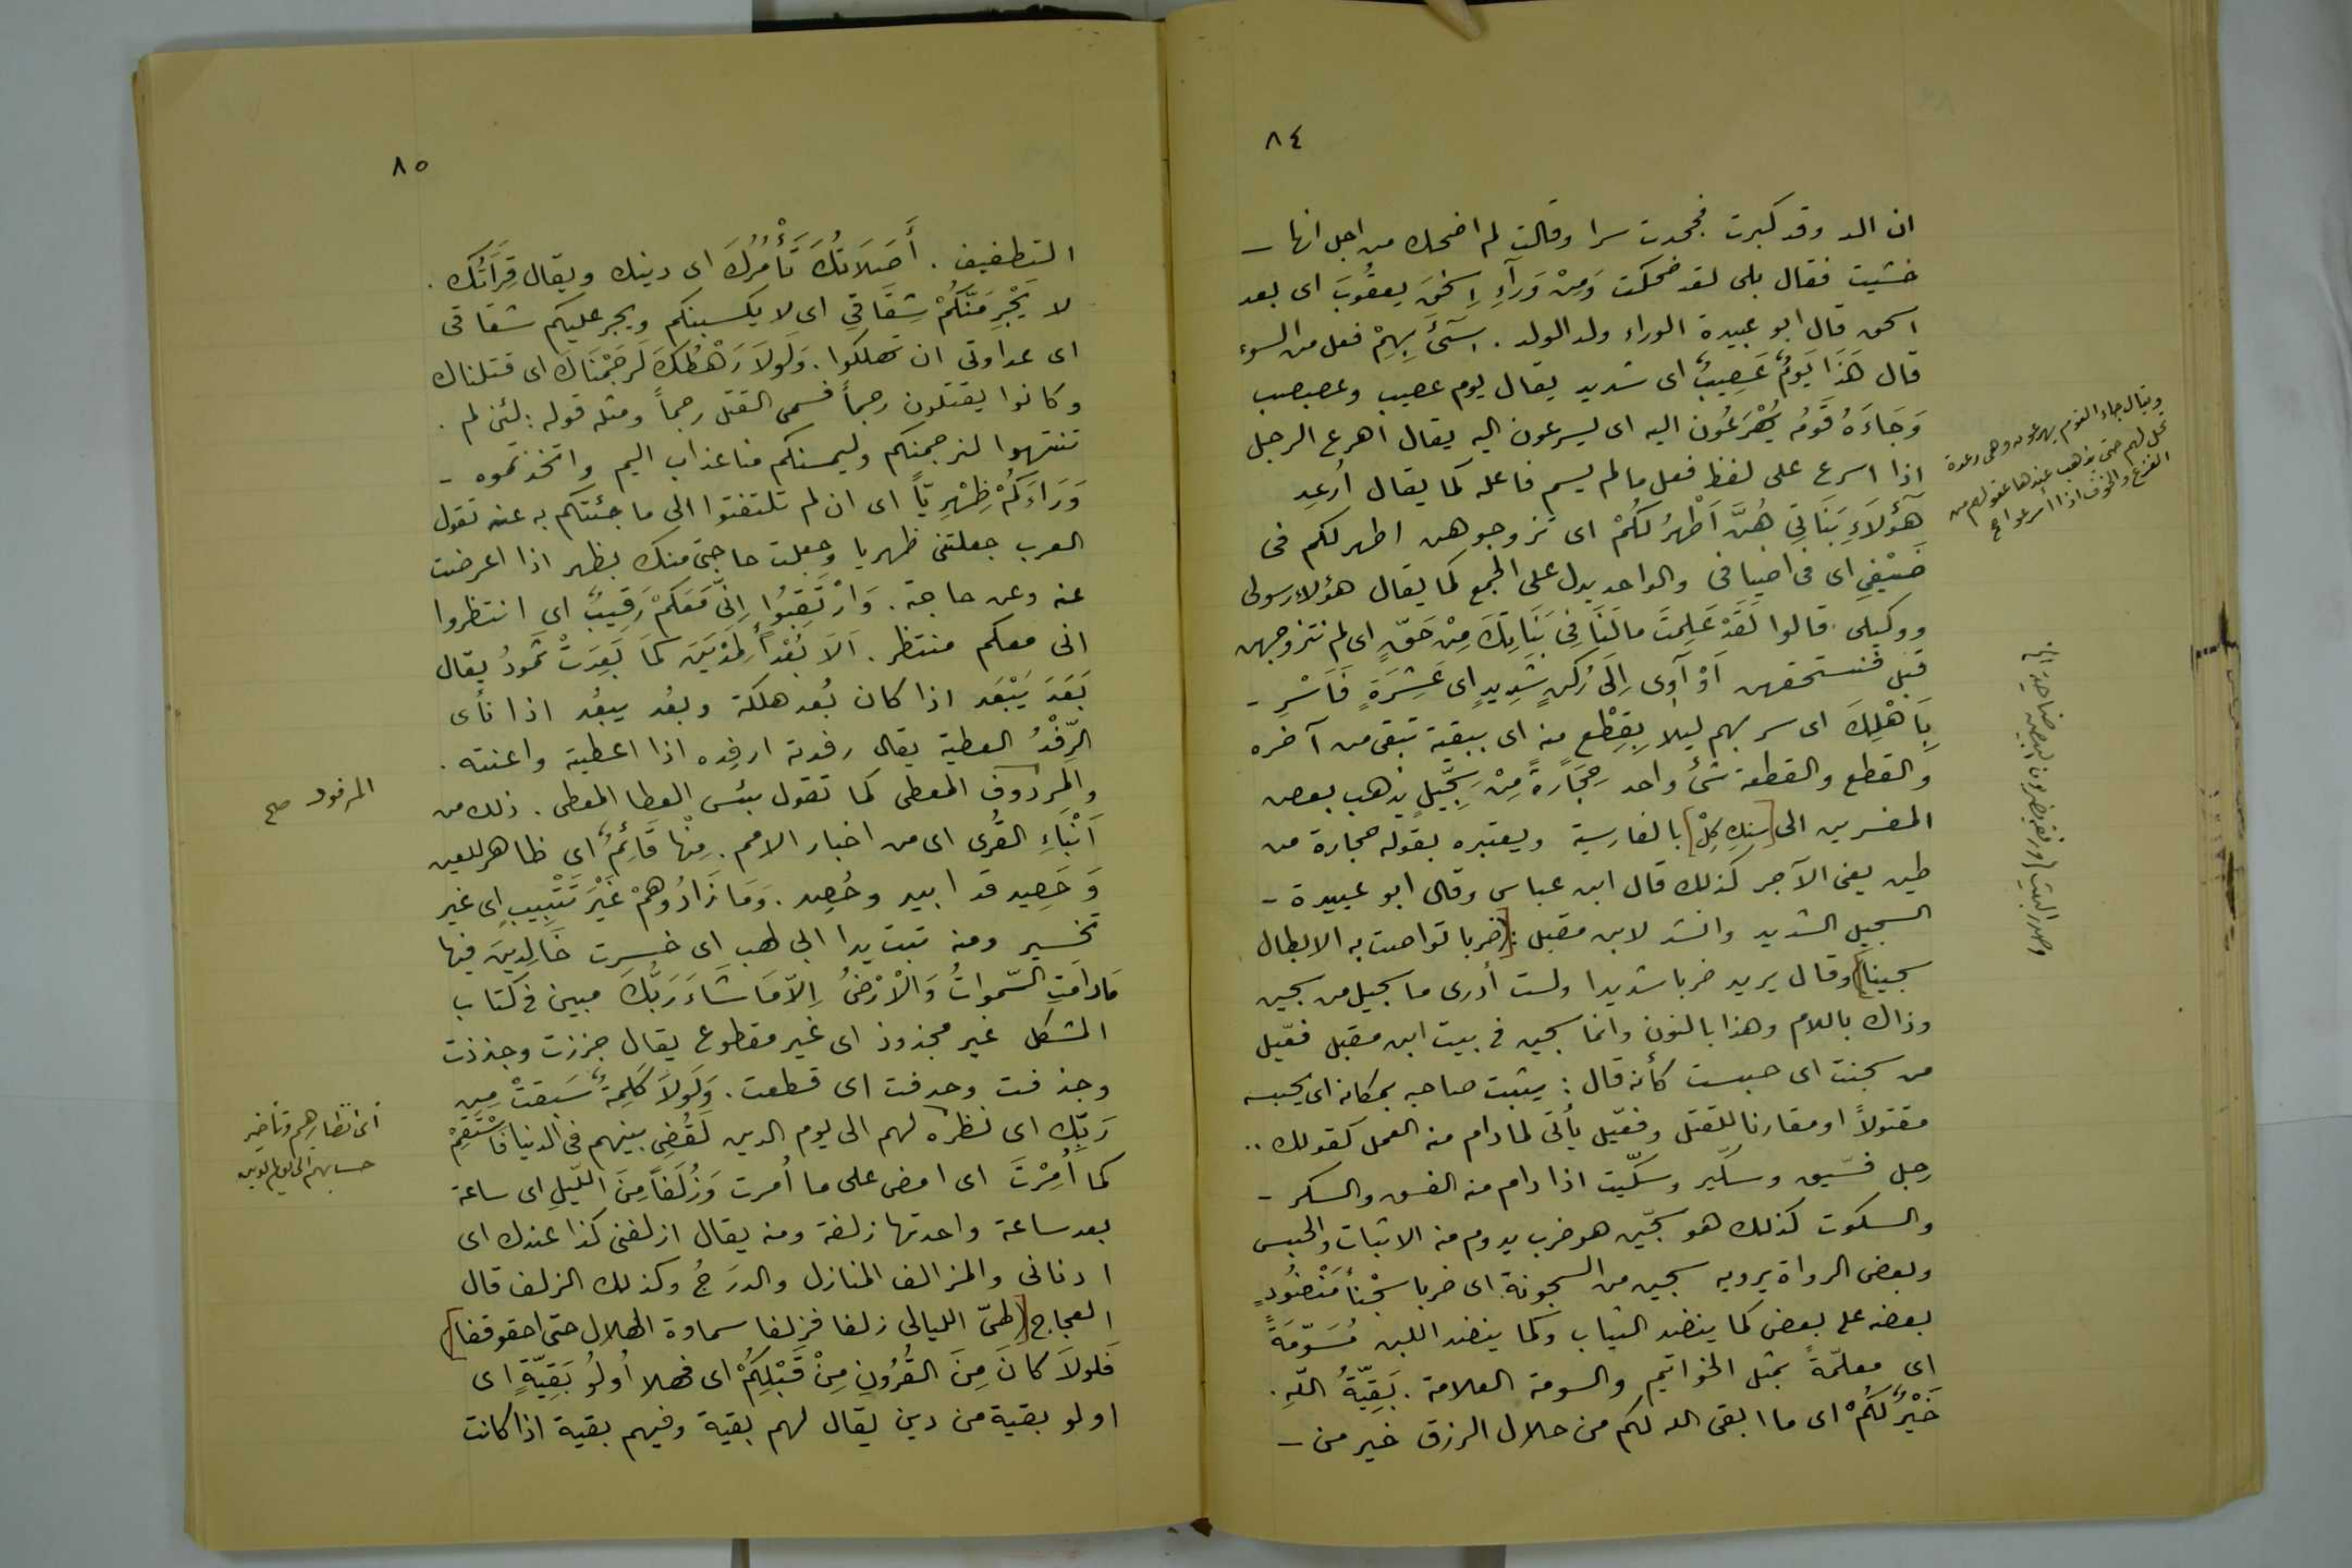 ٨٤
ان الد وقد كبرت فجحدت سرا وقالت لم اضحك من اجل انها –
خشيت فقال بلى لقد ضحكت وَمِنْ وَرَآءِ اِسْحٰقَ يعقُوبَ اى بعد
اسحق قال ابو عبيدة الوراء ولد الولد . سِىٓءَ بِهِمْ فعل من السوء
قال هَذَا يَوْمٌ عَصِيبٌ اى شديد يقال يوم عصيب وعصبصب
وَجَاءَهُ قَومُه يُهْرَعُون اليه اى يسرعون اليه يقال اهرع الرجل
اذا اسرع على لفظ فعل ما لم يسم فاعله كما يقال اُرعِد
هَٓؤُلَاءِ بَنَاتِى هُنَّ اَطْهَرُ لَكُمْ اى تزوجوهن اطهر لكم فى
ضَيْفِى اى فى اضيافى والواحد يدل على الجمع كما يقال هؤلاء رسولى
ووكيلى . قالوا لَقَدْ عَلِمتَ مالَنَا فِى بَنَاتِكَ مِنْ حَقٍّ اى لم نتزوجهن
قبل فنستحقهن اَوْ آوِى اِلَى رُكنٍ شَدِيدٍ اى عَشِيرَةٍ فَاَسْرِ –
بِاَهْلِكَ اى سر بهم ليلا بِقِطْعٍ منه اى ببقية تبقى من آخره
والقطع والقطعة شئ واحد حِجَارَةً مِنْ سِجِّيلٍ يذهب بعض
المفسرين الى [سنك كِلْ] بالفارسية ويعتبره بقوله حجارة من
طين يعنى الآجر كذلك قال ابن عباس وقال ابو عبيدة –
السجيل الشديد وانشد لابن مقبل : [ضربا تواصت به الابطال
سجينا] وقال يريد ضربا شديدا ولست أدرى ما سجيل من سجين
وذاك باللام وهذا بالنون وانما سجين فى بيت ابن مقبل فعّيل
من سجنت اى حبست كأنه قال : يثبت صاحبه بمكانه اى يحبسه
مقتولاً او مقارنا للقتل وفعّيل يأتى لما دام منه العمل كقولك ..
رجل فسّيق وسكّير وسكّيت اذا دام منه الفسق والسكر –
والسكوت كذلك هو سجّين هو ضرب يدوم منه الاثبات والحبس
وبعض الرواة يرويه سجين من السجونة اى ضربا سجْناً مَنْضُودٍ
بعضه على بعض كما ينضد الثياب وكما ينضد اللبن مُسَوّمَةً
اى معلّمةً بمثل الخواتيم والسومة العلامة . بَقِيّةُ اللّهِ .
خَيْرٌ لَكُمْ اى ما ابقى الله لكم من حلال الرزق خير من –
ويقال جاء القوم يهرعون وهى رعدة
تحل بهم حتى تذهب عندها عقولهم من
الفزع والخوف اذا اسرعوا صح
وصدر البيت (ورفقة يضربون البيض ضاحية)
٨٥
التطفيف . أَصَلَاتُكَ تَأْمُرُكَ اى دينك ويقال قِرَآتُك .
لا يَجْرِمَنَّكُمْ شِقَاقِى اى لا يكسبنكم ويجر عليكم شقاقى
اى عداوتى ان تهلكوا . وَلَولاَ رَهْطُكَ لَرَجَمْنَاكَ اى قتلناك
وكانوا يقتلون رجماً فسمى القتل رجماً ومثله قوله : لئن لم .
تنتهوا لنرجمنكم وليمسنكم منا عذاب اليم واتخذتموه –
وَرَاءَكُمْ ظِهْرِيّاً اى ان لم تلتفتوا الى ما جئتكم به عنه تقول
العرب جعلتنى ظهريا وجعلت حاجتى منك بظهر اذا اعرضت
عنه وعن حاجة . وَارْتَقِبُوا اِنِّى مَعَكُمْ رَقِيبٌ اى انتظروا
انى معكم منتظر . اَلاَ بُعْداً لِمَدْيَنَ كَمَا بَعِدَتْ ثَمودُ يقال
بَعَدَ يَبْعَد اذا كان بُعد هلكة وبعُد يبعُد اذا نأى
الرِّفْدُ العطية يقال رفدته ارفِده اذا اعطيته واعنته .
والمردوف المعطى كما تقول بئس العطا المعطى . ذلك من
اَنْبَاءِ القُرى اى من اخبار الامم . مِنْها قَائِمٌ اى ظاهر للعين
وَحَصِيد قد ابيد وحُصِد . وَمَا زَادُوهمْ غَيْرَ تَتْبِيبٍ اى غير
تخسير ومنه تبت يدا ابى لهب اى خسرت خَالِدِينَ فيها
مَادَامَتِ السّموَاتُ وَالْاَرْضُ اِلّا مَا شَاءَ رَبُّكَ مبين فى كتاب
المشكل غير مجذوذ اى غير مقطوع يقال جززت وجذذت
وجذفت وحدفت اى قطعت . وَلَولاَ كَلِمَةٌ سَبَقَتْ مِن
رَبِّك اى نظره لهم الى يوم الدين لَقُضِى بينهم فى الدنيا فَاسْتَقِمْ
كما اُمِرْتَ اى امض على ما اُمرت وَزُلَفاً مِنَ اللّيلِ اى ساعة
بعد ساعة واحدتها زلفة ومنه يقال ازلفنى كذا عندك اى
ادنانى والمزالف المنازل والدرَجُ وكذلك الزلف قال
العجاج [طىّ الليالى زلفا فزلفا سماوة الهلال حتى احقوقفا]
فَلَولاَ كانَ مِنَ القُرُونِ مِنْ قَبْلِكُمْ اى فهلا اُولُو بَقِيّةٍ اى
اولو بقية من دين يقال لهم بقية وفيهم بقية اذا كانت
المرفود صح
اى انتظارهم وتأخير
حسابهم الى يوم الدين